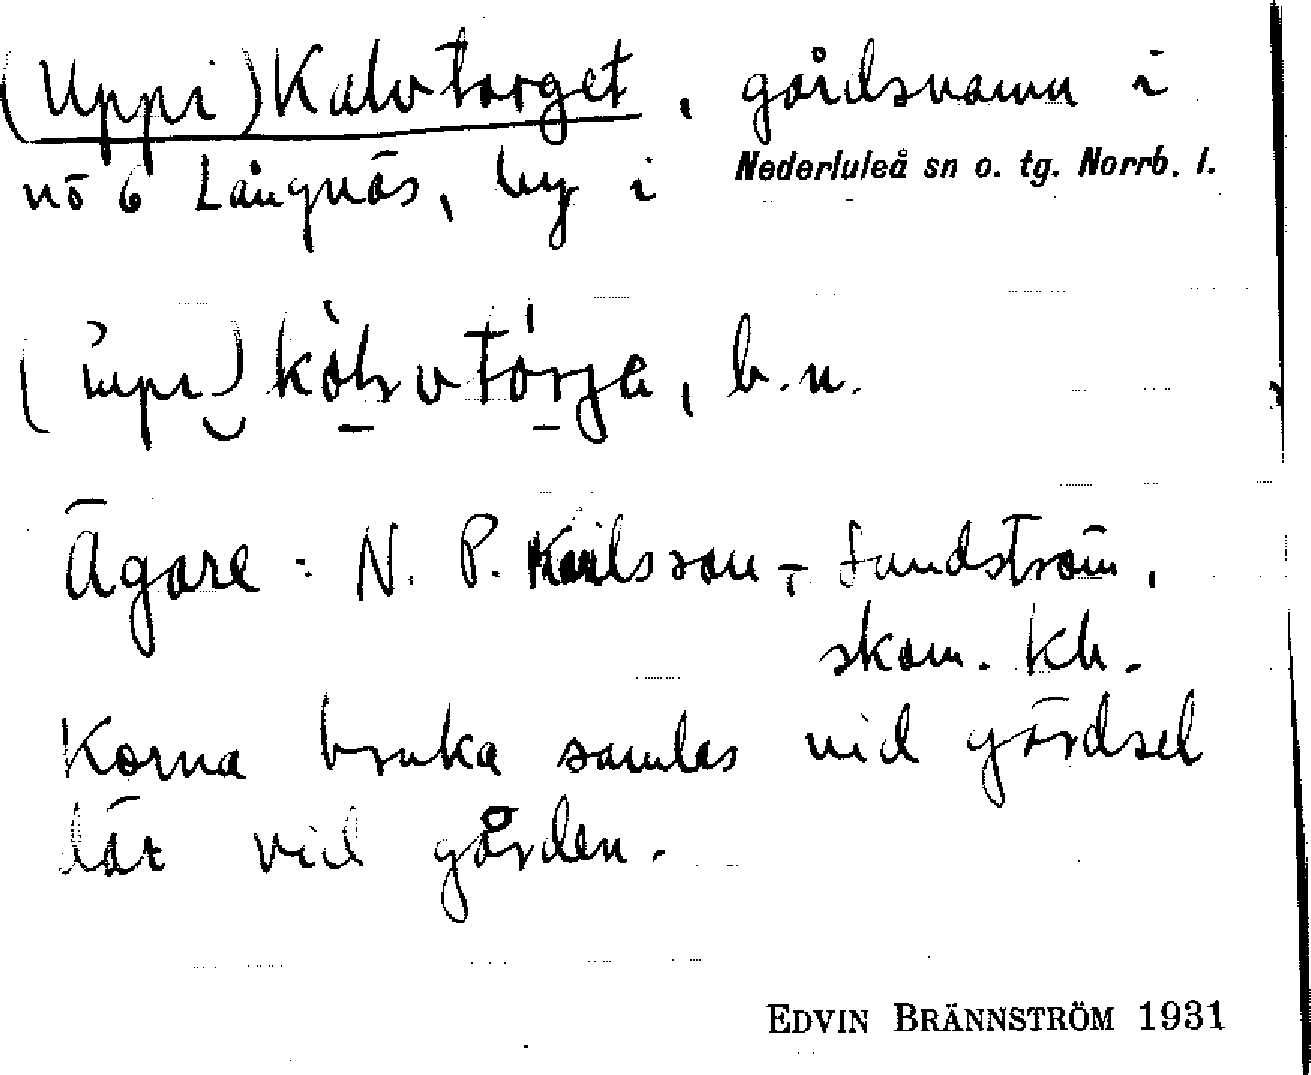 (Uppi) Kalvtorget, gårdsnamn i
nö 6 Långnäs, by i Nederluleå sn o. tg. Norrb. l.
b.n.
Ägare: N. P. Karlsson - Sundström,
skom. Kh.
Korna bruka samlas vid gärdsel
lät vid gården.
EDVIN BRÄNNSTRÖM 1931